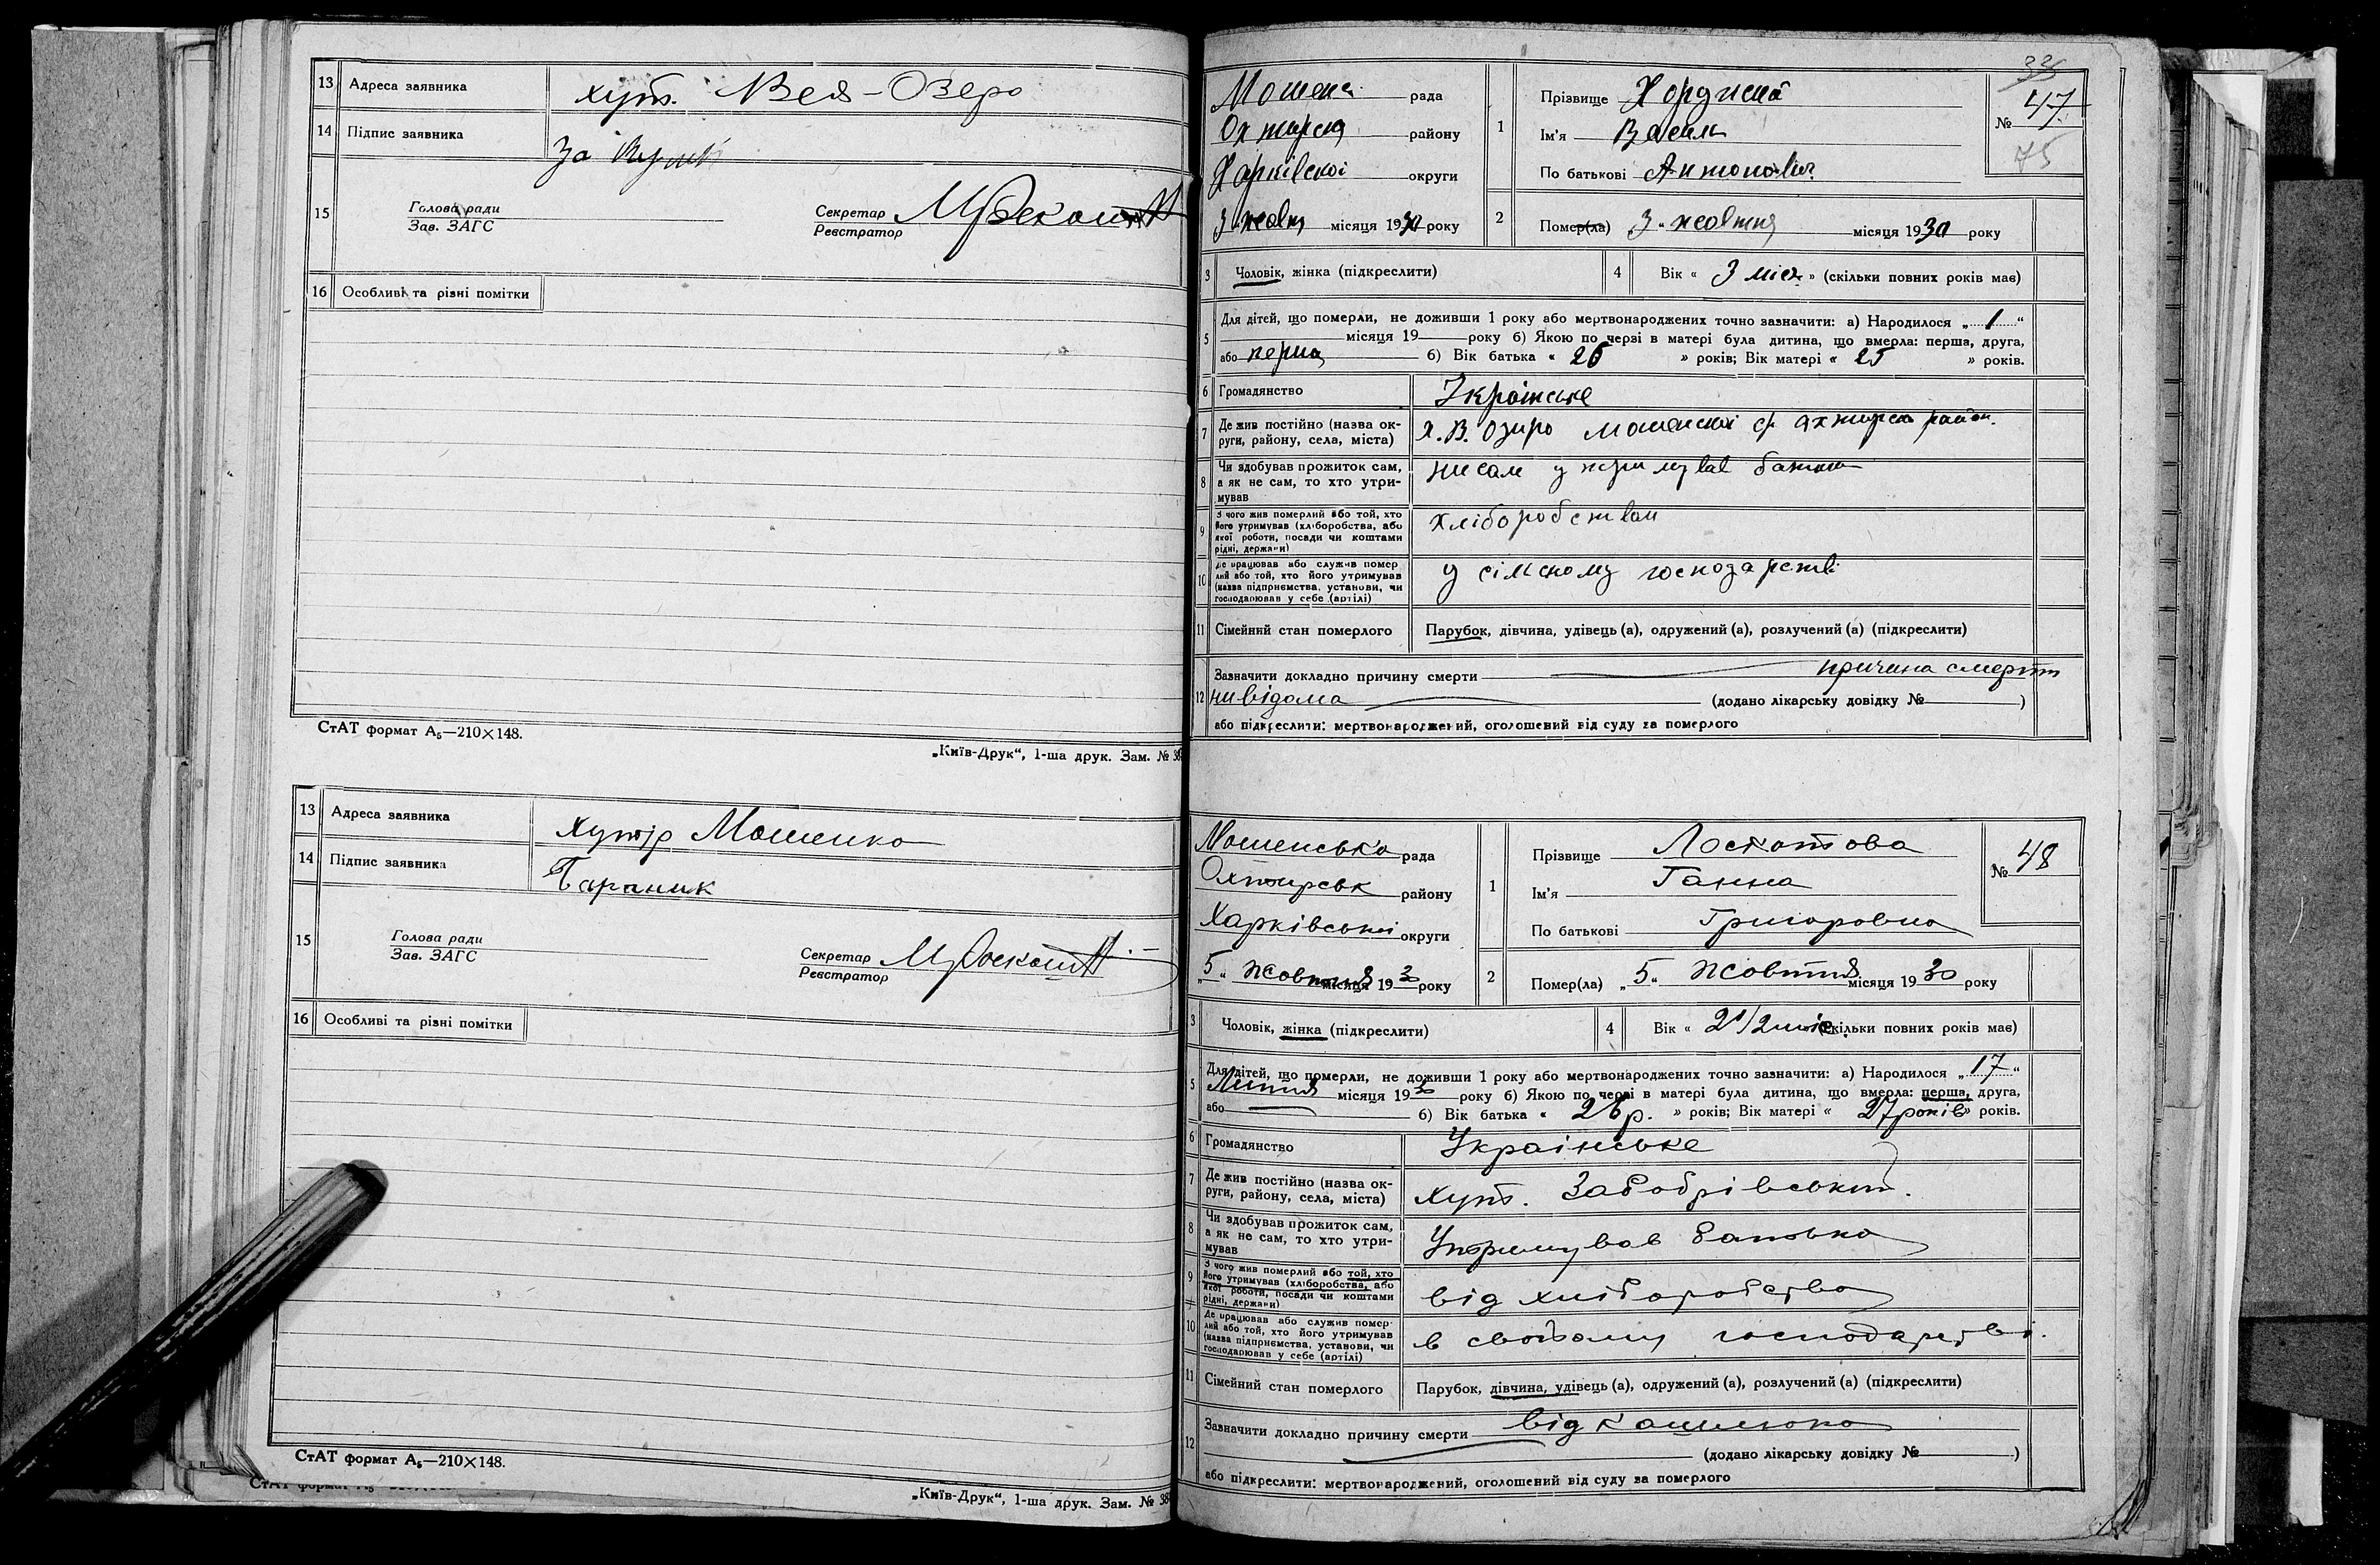 13 Адреса заявника хут. Вел-Озеро
14 Підпис заявника За
15 Голова ради
Зав. ЗАГС
Секретар
Реєстратор
16 Особливі та різні помітки
СтАТ формат А₅—210×148.
„Київ-Друк“, 1-ша друк. Зам. № 38
13 Адреса заявника Хутір Мошенка
14 Підпис заявника Бараник
15 Голова ради
Зав. ЗАГС
Секретар
Реєстратор
16 Особливі та різні помітки
СтАТ формат А₅—210×148.
„Київ-Друк“, 1-ша друк. Зам. № 38
33
Мошенс рада
Охтирск району
Харківскої округи
3 жовтн місяця 1930 року
1 Прізвище
Ім'я Василь
По батькові Антонович
№ 47
75
2 Помер(ла) „3“ жовтня місяця 1930 року
3 Чоловік, жінка (підкреслити)
4 Вік « 3 міс. » (скільки повних років має)
5 Для дітей, що померли, не доживши 1 року або мертвонароджених точно зазначити: а) Народилося „ 1 “
місяця 19 року б) Якою по черзі в матері була дитина, що вмерла: перша, друга,
або перша б) Вік батька « 26 » років; Вік матері « 25 » років.
6 Громадянство Українське
7 Де жив постійно (назва ок-
руги, району, села, міста) х. В. Озиро Мошенскої с/р Охтирск район.
8 Чи здобував прожиток сам,
а як не сам, то хто утри-
мував
нисам утримував батько
9 З чого жив померлий або той, хто
його утримував (хліборобства, або
якої роботи, посади чи коштами
рідні, держави)
хліборобством
10 Де працював або служив помер
лий або той, хто його утримував
(назва підприємства, установи, чи
господарював у себе (артілі)
у сілскому господарстві
11 Сімейний стан померлого Парубок, дівчина, удівець (а), одружений (а), розлучений (а) (підкреслити)
12 Зазначити докладно причину смерти причина смерти
нивідома (додано лікарську довідку № )
або підкреслити: мертвонароджений, оголошений від суду за померлого
Мошенська рада
Охтирськ району
Харківської округи
„5“ Жовтня місяця 1930 року
1 Прізвище Лоскотова
Ім'я Ганна
По батькові Григоровна
№ 48
2 Помер(ла) „5“ Жовтня місяця 1930 року
3 Чоловік, жінка (підкреслити)
4 Вік « 2 1/2 міс. (скільки повних років має)
5 Для дітей, що померли, не доживши 1 року або мертвонароджених точно зазначити: а) Народилося „ 17 “
Липня місяця 1930 року б) Якою по черзі в матері була дитина, що вмерла: перша, друга,
або б) Вік батька « 28 р. » років; Вік матері « 27 років » років.
6 Громадянство Українське
7 Де жив постійно (назва ок-
руги, району, села, міста) хут.
8 Чи здобував прожиток сам,
а як не сам, то хто утри-
мував
Утримував батько
9 З чого жив померлий або той, хто
його утримував (хліборобства, або
якої роботи, посади чи коштами
рідні, держави)
від хліборобства
10 Де працював або служив помер-
лий або той, хто його утримував
(назва підприємства, установи, чи
господарював у себе (артілі)
в своєому господарстві.
11 Сімейний стан померлого Парубок, дівчина, удівець (а), одружений (а), розлучений (а) (підкреслити)
12 Зазначити докладно причину смерти від кашлюка
(додано лікарську довідку № )
або підкреслити: мертвонароджений, оголошений від суду за померлого